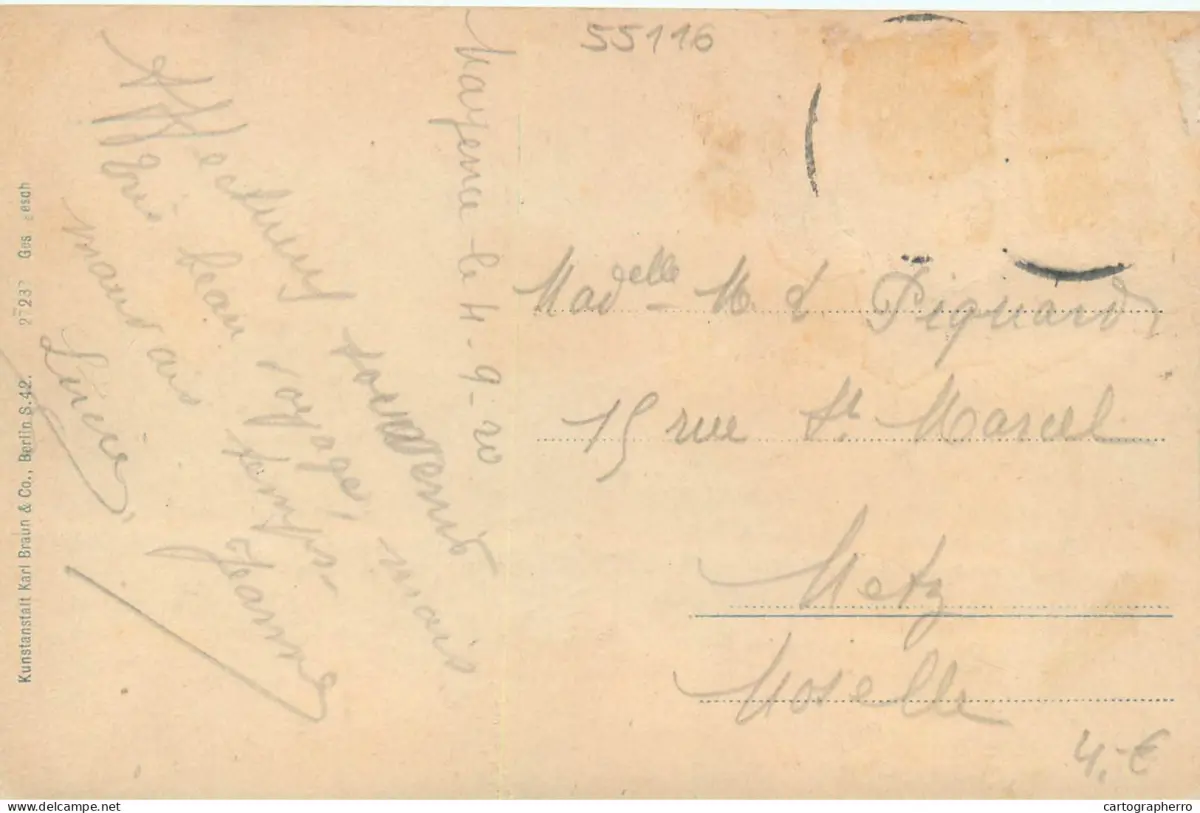 55116
Mayence le 4-9-20
Affectueux souvenir
Très beau voyage, mais
mauvais temps-
Lucie, Jeanne
Madelle M. L. Piquard,
15 rue St. Marcel
Metz
Moselle
4,-€
Kunstanstalt Karl Braun & Co., Berlin S.42. Ges
www.delcampe.net
cartographerro